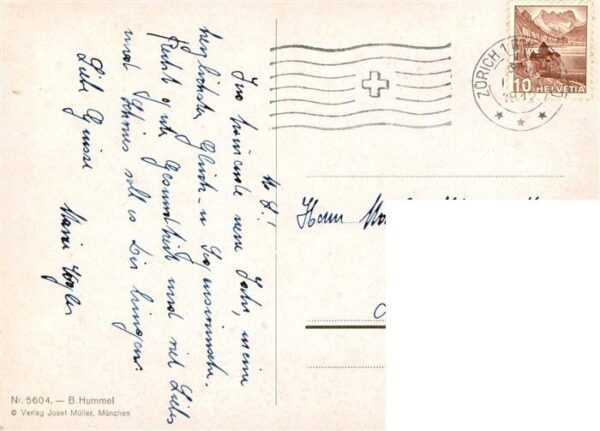 M. L.!
Ins kommende neue Jahr, meine
herzlichsten Glück- u. Segenswünsche.
Recht gute Gesundheit und viel Liebes
und Schönes soll es Dir bringen.
Liebe Grüsse
Herrn
ZÜRICH 1
10 HELVETIA
Nr. 5604. — B. Hummel
© Verlag Josef Müller, München